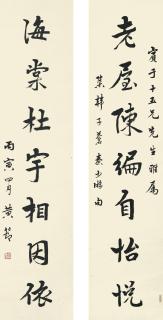 老屋陳編自怡悅
賓于十五兄先生雅屬
集韓子蒼秦少游句
海棠杜宇相因依
丙寅四月黃節